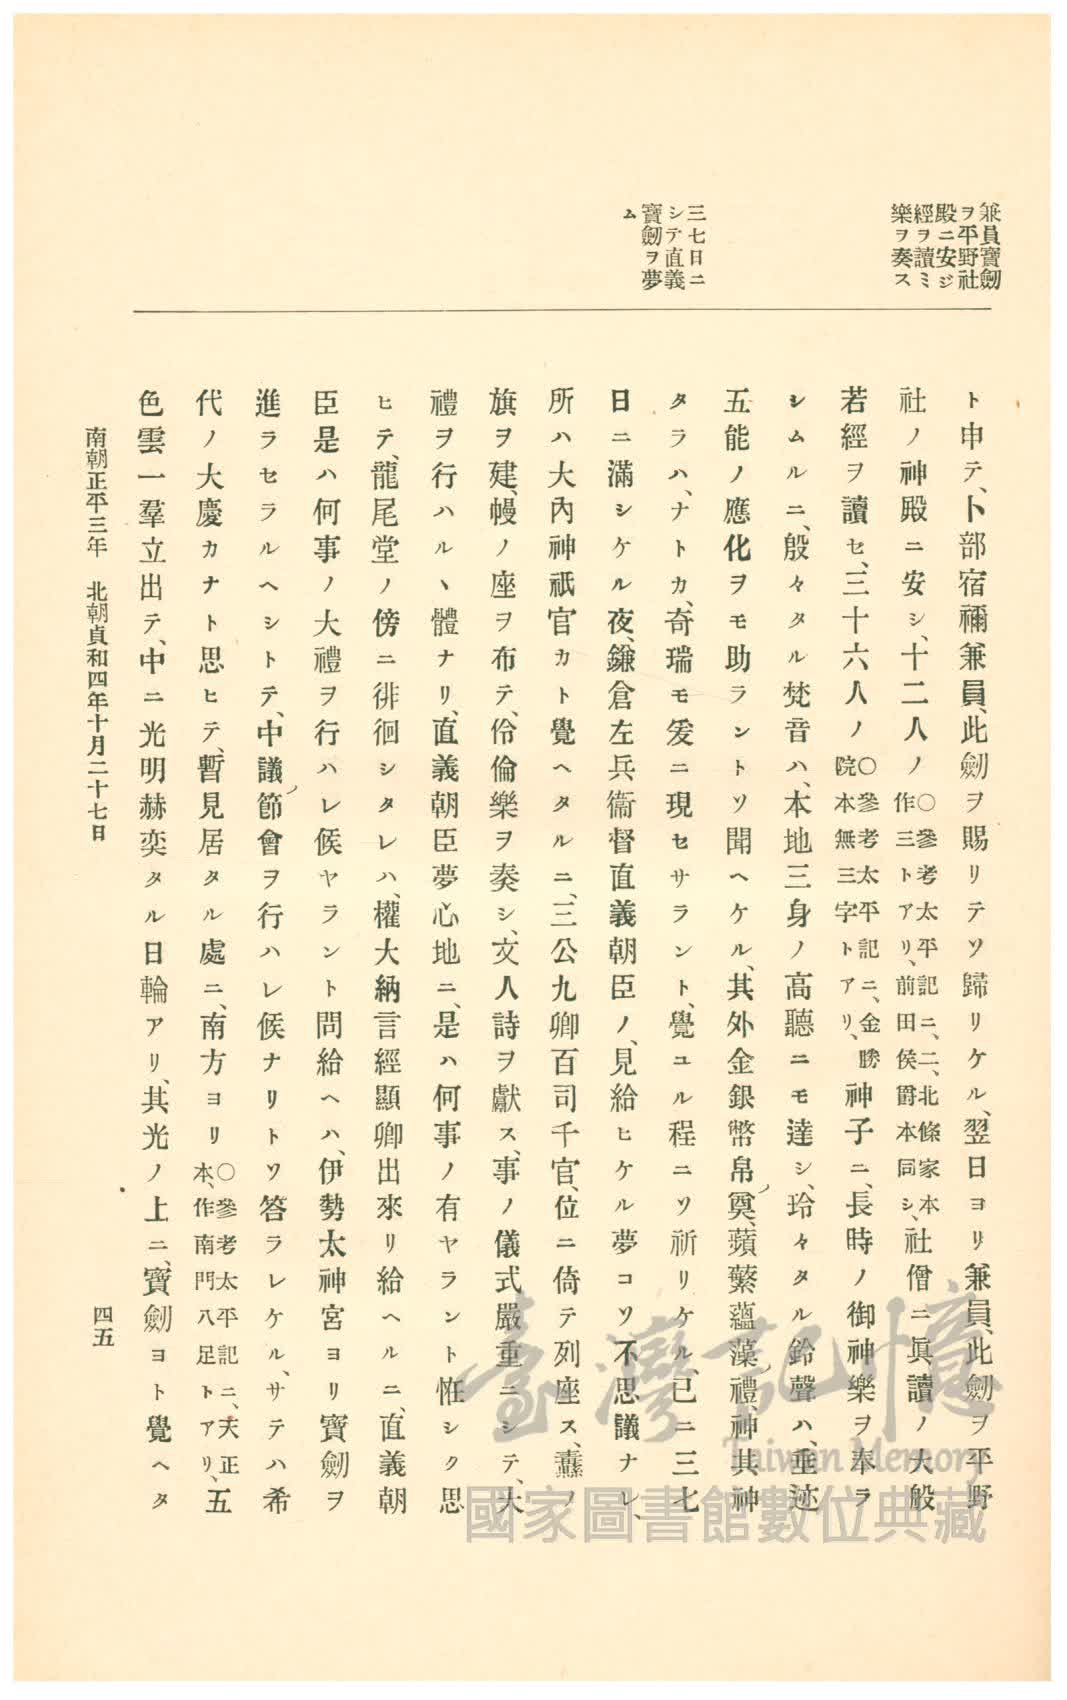 兼員寶劔
ヲ平野社
殿ニ安ジ
經ヲ讀ミ
樂ヲ奏ス
三七日ニ
シテ直義
寶劔ヲ夢
ム
ト申テ、卜部宿禰兼員、此劔ヲ賜リテソ歸リケル、翌日ヨリ兼員、此劔ヲ平野
社ノ神殿ニ安シ、十二人ノ〇參考太平記ニ、二、北條家本作三トアリ、前田侯爵本同シ、社僧ニ眞讀ノ大般
若經ヲ讀セ、三十六人ノ〇參考太平記ニ、金勝院本無三字トアリ、神子ニ、長時ノ御神樂ヲ奉ラ
シムルニ、殷々タル梵音ハ、本地三身ノ高聽ニモ達シ、玲々タル鈴聲ハ、垂迹
五能ノ應化ヲモ助ラントソ聞ヘケル、其外金銀幣帛奠、蘋蘩蘊藻禮、神其神
タラハ、ナトカ、奇瑞モ爰ニ現セサラント、覺ユル程ニソ祈リケル、已ニ三七
日ニ滿シケル夜、鎌倉左兵衞督直義朝臣ノ、見給ヒケル夢コソ不思議ナレ、
所ハ大內神祇官カト覺ヘタルニ、三公九卿百司千官、位ニ倚テ列座ス、纛ノ
旗ヲ建、幔ノ座ヲ布テ、伶倫樂ヲ奏シ、文人詩ヲ獻ス、事ノ儀式嚴重ニシテ、大
禮ヲ行ハルヽ體ナリ、直義朝臣夢心地ニ、是ハ何事ノ有ヤラント恠シク思
ヒテ、龍尾堂ノ傍ニ徘徊シタレハ、權大納言經顯卿出來リ給ヘルニ、直義朝
臣是ハ何事ノ大禮ヲ行ハレ候ヤラント問給ヘハ、伊勢太神宮ヨリ寶劔ヲ
進ラセラルヘシトテ、中議節會ヲ行ハレ候ナリトソ答ラレケル、サテハ希
代ノ大慶カナト思ヒテ、暫見居タル處ニ、南方ヨリ〇參考太平記ニ、天正本、作南門八足トアリ、五
色雲一羣立出テ、中ニ光明赫奕タル日輪アリ、其光ノ上ニ、寶劔ヨト覺ヘタ
南朝正平三年 北朝貞和四年十月二十七日
四五
臺灣記憶
Taiwan Memory
國家圖書館數位典藏